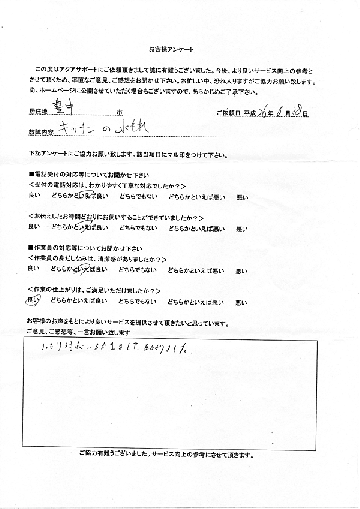 お客様アンケート
この度はアクアサポートにご依頼頂きまして誠に有難うございました。今後、より良いサービス向上の参考と
させて頂くため、率直なご意見、ご感想をお聞かせ下さい。お忙しい中、恐れ入りますがご協力お願い致します。
尚、ホームページに公開させていただく場合もございますので、あらかじめご了承下さい。
市 ご依頼日 平成 26年 8月 28日
キッチンの水漏れ
下記アンケートにご協力お願い致します。該当項目に丸印をつけて下さい。
■電話受付の対応等についてお聞かせ下さい
<受付の電話対応は、わかりやすく丁寧な対応でしたか?>
良い どちらかといえば良い どちらでもない どちらかといえば悪い 悪い
<お伝えしたお時間どおりにお伺いすることができていましたか?>
良い どちらかといえば良い どちらでもない どちらかといえば悪い 悪い
■作業員の対応等についてお聞かせ下さい
<作業員の身だしなみは、清潔感がありましたか?>
良い どちらかといえば良い どちらでもない どちらかといえば悪い 悪い
<作業の仕上がりは、ご満足いただけましたか?>
良い どちらかといえば良い どちらでもない どちらかといえば悪い 悪い
お客様のお声をもとにより良いサービスを提供させて頂きたいと思っています。
ご意見、ご感想等、一言お願い致します
ご協力有難うございました。サービス向上の参考にさせて頂きます。